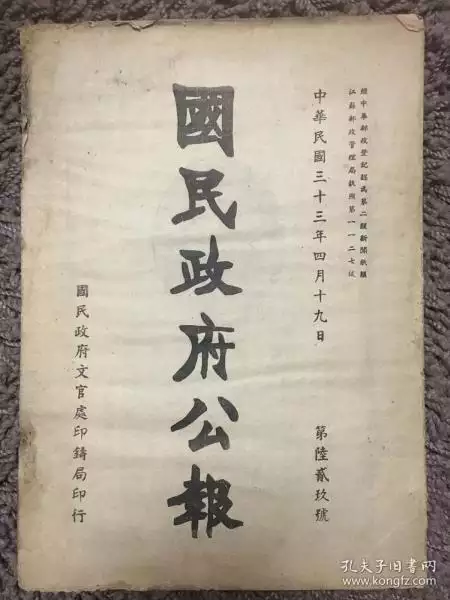 經中華郵政登記認為第二類新聞紙類
江蘇郵政管理局執照第一一二七號
中華民國三十三年四月十九日
第陸貳玖號
國民政府公報
國民政府文官處印鑄局印行
孔夫子旧书网
www.kongfz.com